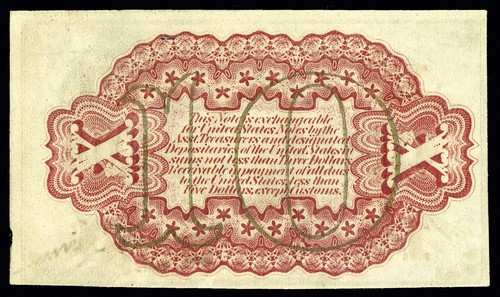 This Note is exchangeable
for United States Notes by the
Asst. Treasurers and designated
Depositaries of the United States in
sums not less than Three Dollars
Receivable in payment of all dues
to the United States less than
Five Dollars, except Customs.
10
X
X